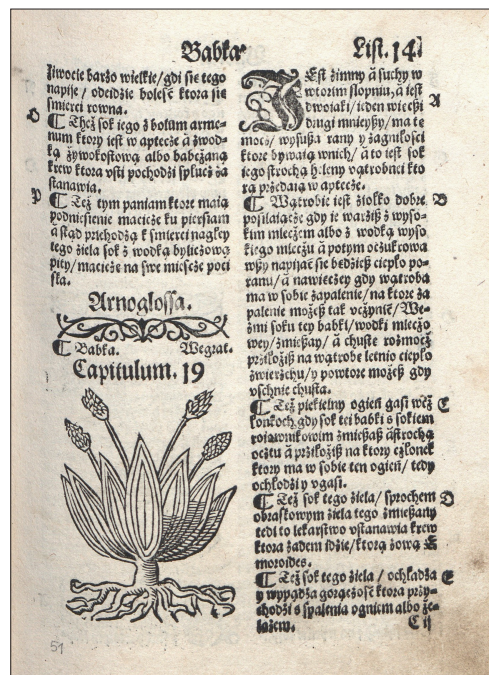 Babka
List. 14
żiwocie barzo wielkie/gdi sie tego
napije/ odeidzie bolesć ktora sie
smierci rowna.
O
¶ Theż sok iego z bolum arme-
num ktory iest w aptecże ā zwod-
ką żywokostową albo babcżaną
krew ktora vsti pochodżi z pluc ża
stanawia.
P
¶ Też tym paniam ktore maią
podniesienie macicże ku piersiam
ā stąd prżichodżą k smierci nagłey
tego żiela sok z wodką bylicżową
pity/macicże na swe miescże poci
ska.
Arnoglossa.
¶ Babka. Wegrat.
Capitulum. 19
51
IEst żimny ā suchy w
wtorim stopniu, ā iest
A
dwoiaki/ ieden wietszi
drugi mnieyszy/ma tę
moc/ wysusza rany y żagniłosći
ktore bywaią wnich/ ā to iest sok
iego strochą wątrobnei kto
rą przedaią w aptecże.
¶ Wątrobie iest żiołko dobre
B
posilaiącże gdy ie warżisz z wyso-
kim mlecżem albo z wodką wyso
kiego mlecżu ā potym ocżukrowa
wszy napijać sie będżiesz ciepło po-
ranu/ ā nawiecżey gdy wątroba
ma w sobie żapalenie/na ktore ża
palenie możesz tak vcżynić/ We-
żmi soku tey babki/wodki mlecżo
wey/żmieszay/ ā chuste rożmocż
prżiłożisz na wątrobe letnio ciepło
żwierżchu/y powtore możesz gdy
vschnie chusta.
¶ Też piekielny ogień gasi wcż
C
łonkoch, gdy sok tei babki s sokiem
roiownikowim żmieszasz āstrochą
octu ā prżiłożisz na ktory cżłonek
ktory ma w sobie ten ogień/ tedy
ochłodżi y vgasi.
¶ Też sok tego żiela/ sprochem
D
obraskowym żiela tego żmieszany
tedi to lekarstwo vstanawia krew
ktora żadem idżie/ktorą żową E
moroides.
¶ Też sok tego żiela / ochładża
E
y wypądża gorącżość ktora prży-
chodżi s spalenia ogniem albo że-
lażem.
C ij